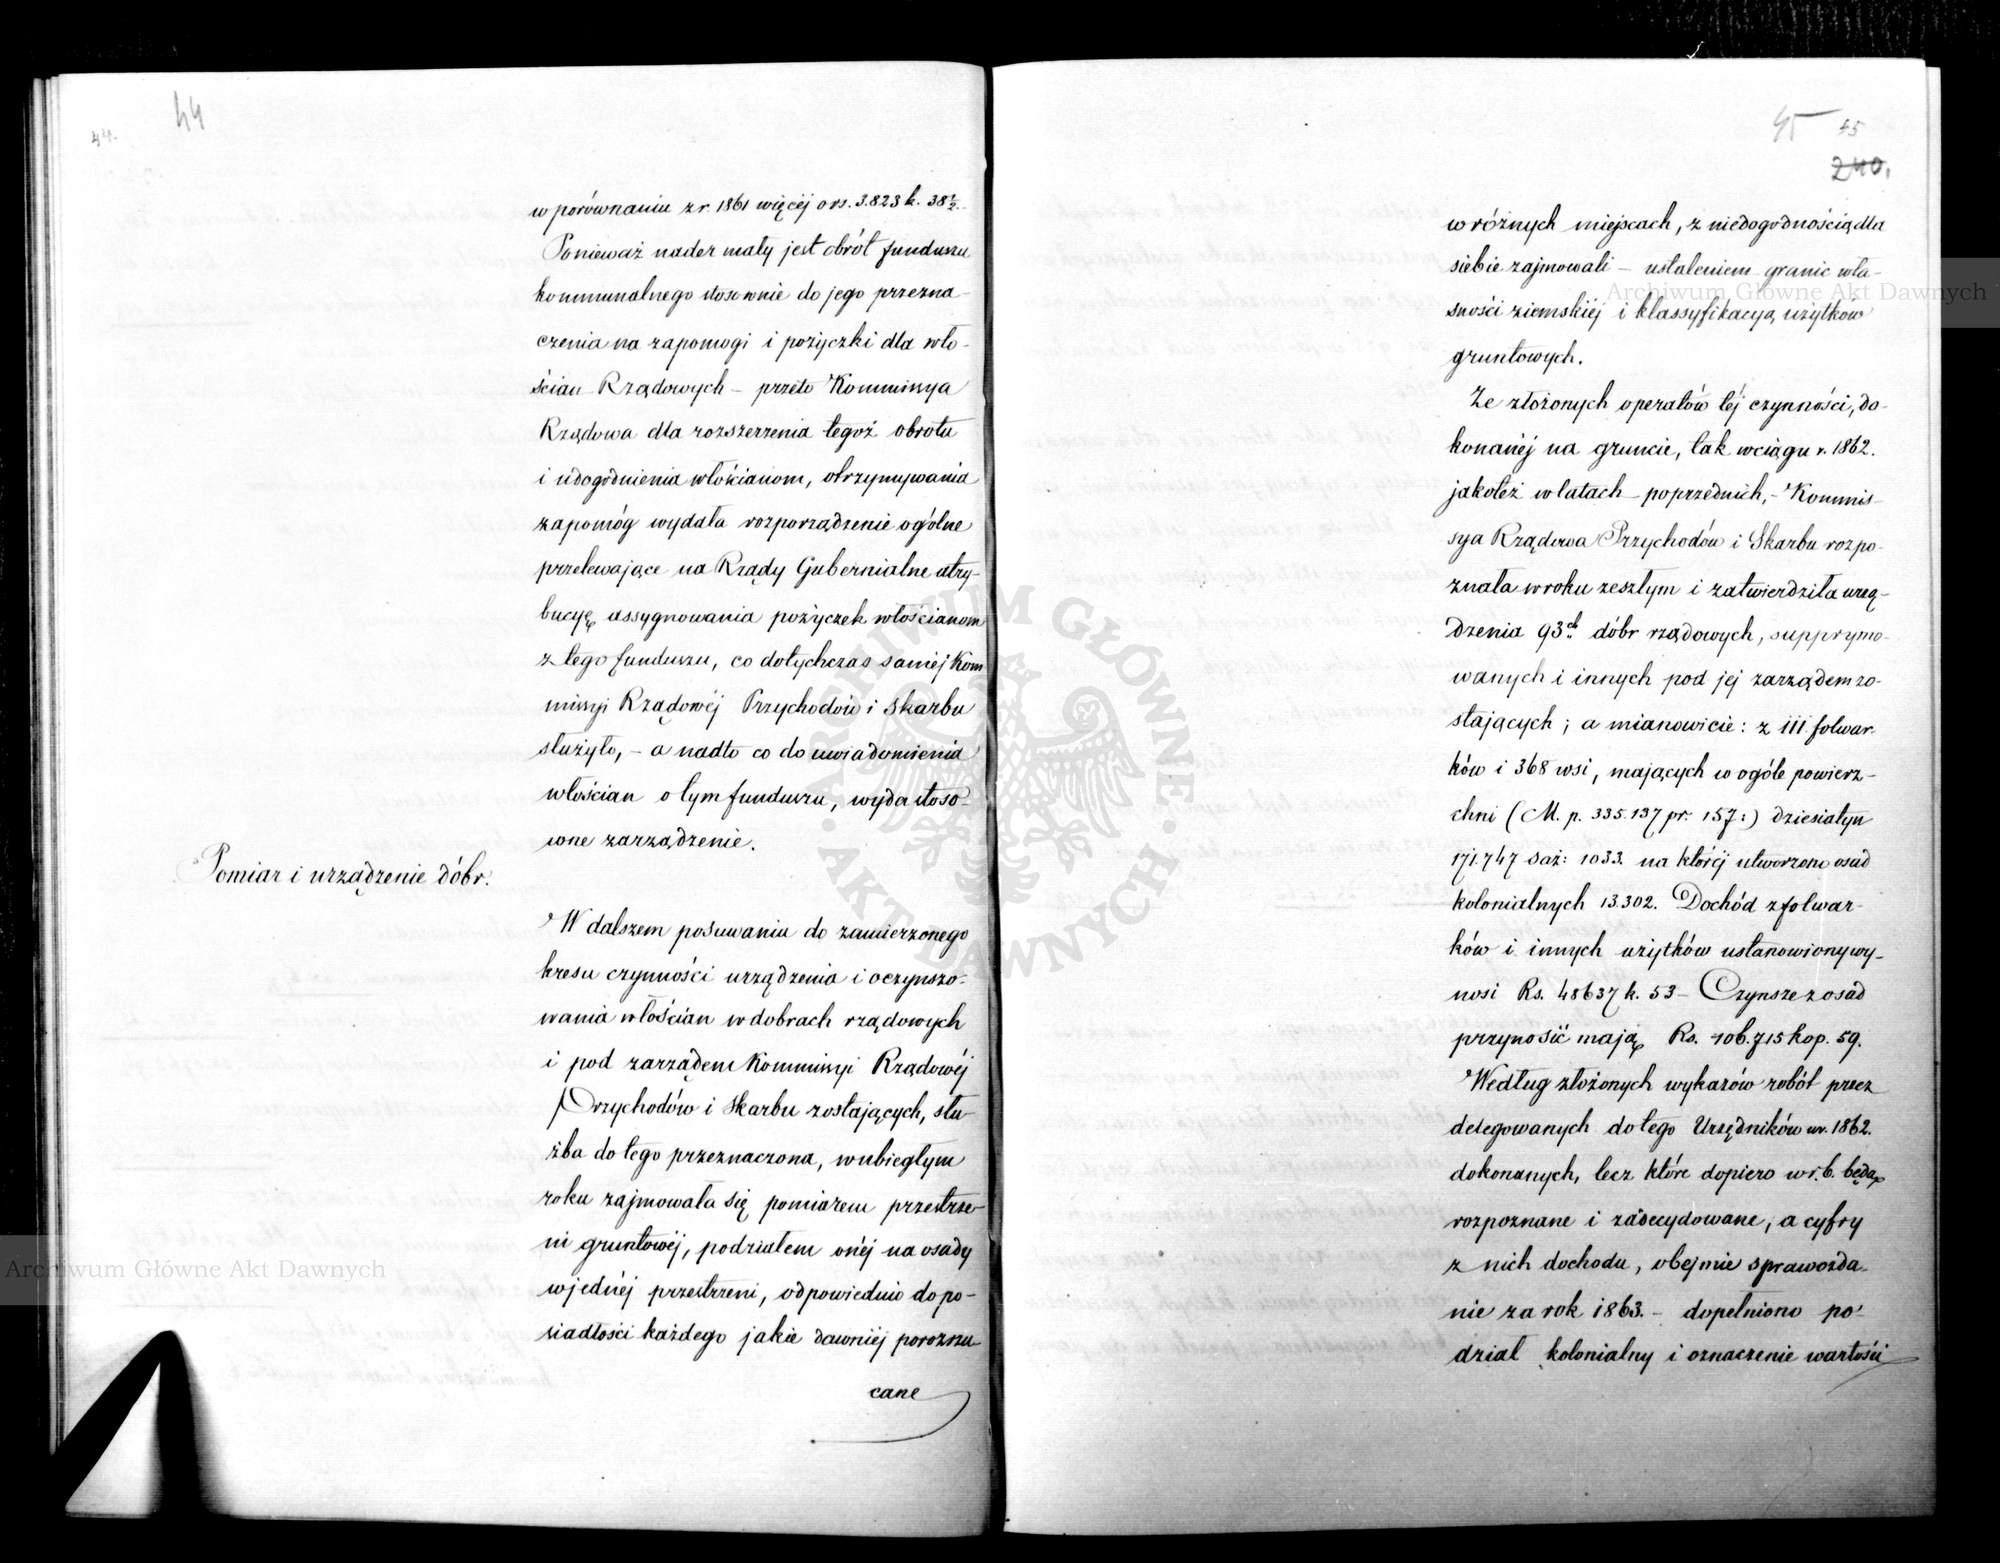 44
44.
w porównaniu z r. 1861 więcéj o rs. 3.823 k. 38½.
Ponieważ nader mały jest obrót funduszu
kommunalnego stosownie do jego przezna-
czenia na zapomogi i pożyczki dla wło-
ścian Rządowych – przeto Kommissya
Rządowa dla rozszerzenia tegoż obrotu
i udogodnienia włościanom, otrzymywania
zapomóg wydała rozporządzenie ogólne
przelewające na Rządy Gubernialne atry-
bucyę assygnowania pożyczek włościanom
z tego funduszu, co dotychczas saméj Kom
missyi Rządowéj Przychodów i Skarbu
służyło, – a nadto co do uwiadomienia
włościan o tym funduszu, wyda stoso-
wne zarządzenie.
Pomiar i urządzenie dóbr.
W dalszem posuwaniu do zamierzonego
kresu czynności urządzenia i oczynszo-
wania włościan w dobrach rządowych
i pod zarządem Kommissyi Rządowéj
Przychodów i Skarbu zostających, słu-
żba do tego przeznaczona, w ubiegłym
roku zajmowała się pomiarem przestrze-
ni gruntowéj, podziałem onéj na osady
w jednéj przestrzeni, odpowiednio do po-
siadłości każdego jakie dawniéj porozrzu
cane
45
45
240.
w różnych miejscach, z niedogodnością dla
siebie zajmowali – ustaleniem granic wła-
sności ziemskiéj i klassyfikacyą użytków
gruntowych.
Ze złożonych operatów téj czynności, do-
konanéj na gruncie, tak w ciągu r. 1862.
jakoteż w latach poprzednich, – Kommis-
sya Rządowa Przychodów i Skarbu rozpo-
znała w roku zeszłym i zatwierdziła urzą-
dzenia 93ch dóbr rządowych, supprymo-
wanych i innych pod jej zarządem zo-
stających; a mianowicie: z 111 folwar-
ków i 368 wsi, mających w ogóle powierz-
chni (M. p. 335.137 pr. 157:) dziesiatyn
171.747 saż: 1033. na któréj utworzono osad
kolonialnych 13.302. Dochód z folwar-
ków i innych użytków ustanowiony wy-
nosi Rs. 48637 k. 53 – Czynsze z osad
przynosić mają Rs. 106.715 kop. 59.
Według złożonych wykazów robót przez
delegowanych do tego Urzędników w r. 1862.
dokonanych, lecz które dopiero w r. b. będą
rozpoznane i zadecydowane, a cyfry
z nich dochodu, obejmie sprawozda-
nie za rok 1863. – dopełniono po-
dział kolonialny i oznaczenie wartości
Archiwum Główne Akt Dawnych
Archiwum Główne Akt Dawnych
ARCHIWUM GŁÓWNE
AKT DAWNYCH